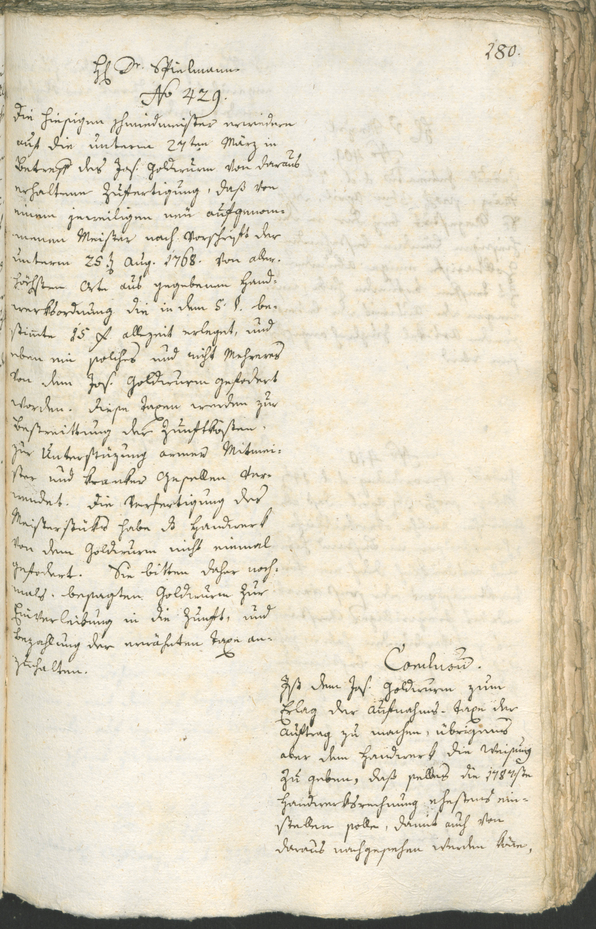 280.
H Dr. Spielmann.
No 429.
Die hiesigen Schmiedmeister erwiedern
auf die unterm 27ten März in
Betreff des Jos. Goldwurm von daraus
erhaltene Zufertigung, daß von
einem jeweiligen neu aufgenom-
menen Meister nach Vorschrift der
unterm 25. Aug. 1768. von aller-
höchsten Orte aus gegebenen Hand-
werksordnung die in dem 5. §. be-
stimte 15 f allzeit erleget, und
eben ein solches und nicht Mehreres
von dem Jos. Goldwurm gefodert
worden. Diese Taxen werden zur
Bestreittung der Zunftkösten,
zur Unterstüzung armer Mitmei-
ster und kranker Gesellen ver-
wendet. Die Verfertigung des
Meisterstüks habe das Handwerk
von dem Goldwurm nicht einmal
gefodert. Sie bitten daher noch-
mals, besagten Goldwurm zur
Einverleibung in die Zunft, und
Bezahlung der erwähnten Taxe an-
zuhalten.
Conclusum.
Ist dem Jos. Goldwurm zum
Erlag der Aufnahms-Taxe der
Auftrag zu machen, übrigens
aber dem Handwerk die Weisung
zu geben, daß selbes die 1787ste
Handwerksrechnung ehestens ein-
stellen solle, damit auch von
daraus nachgesehen werden köne,